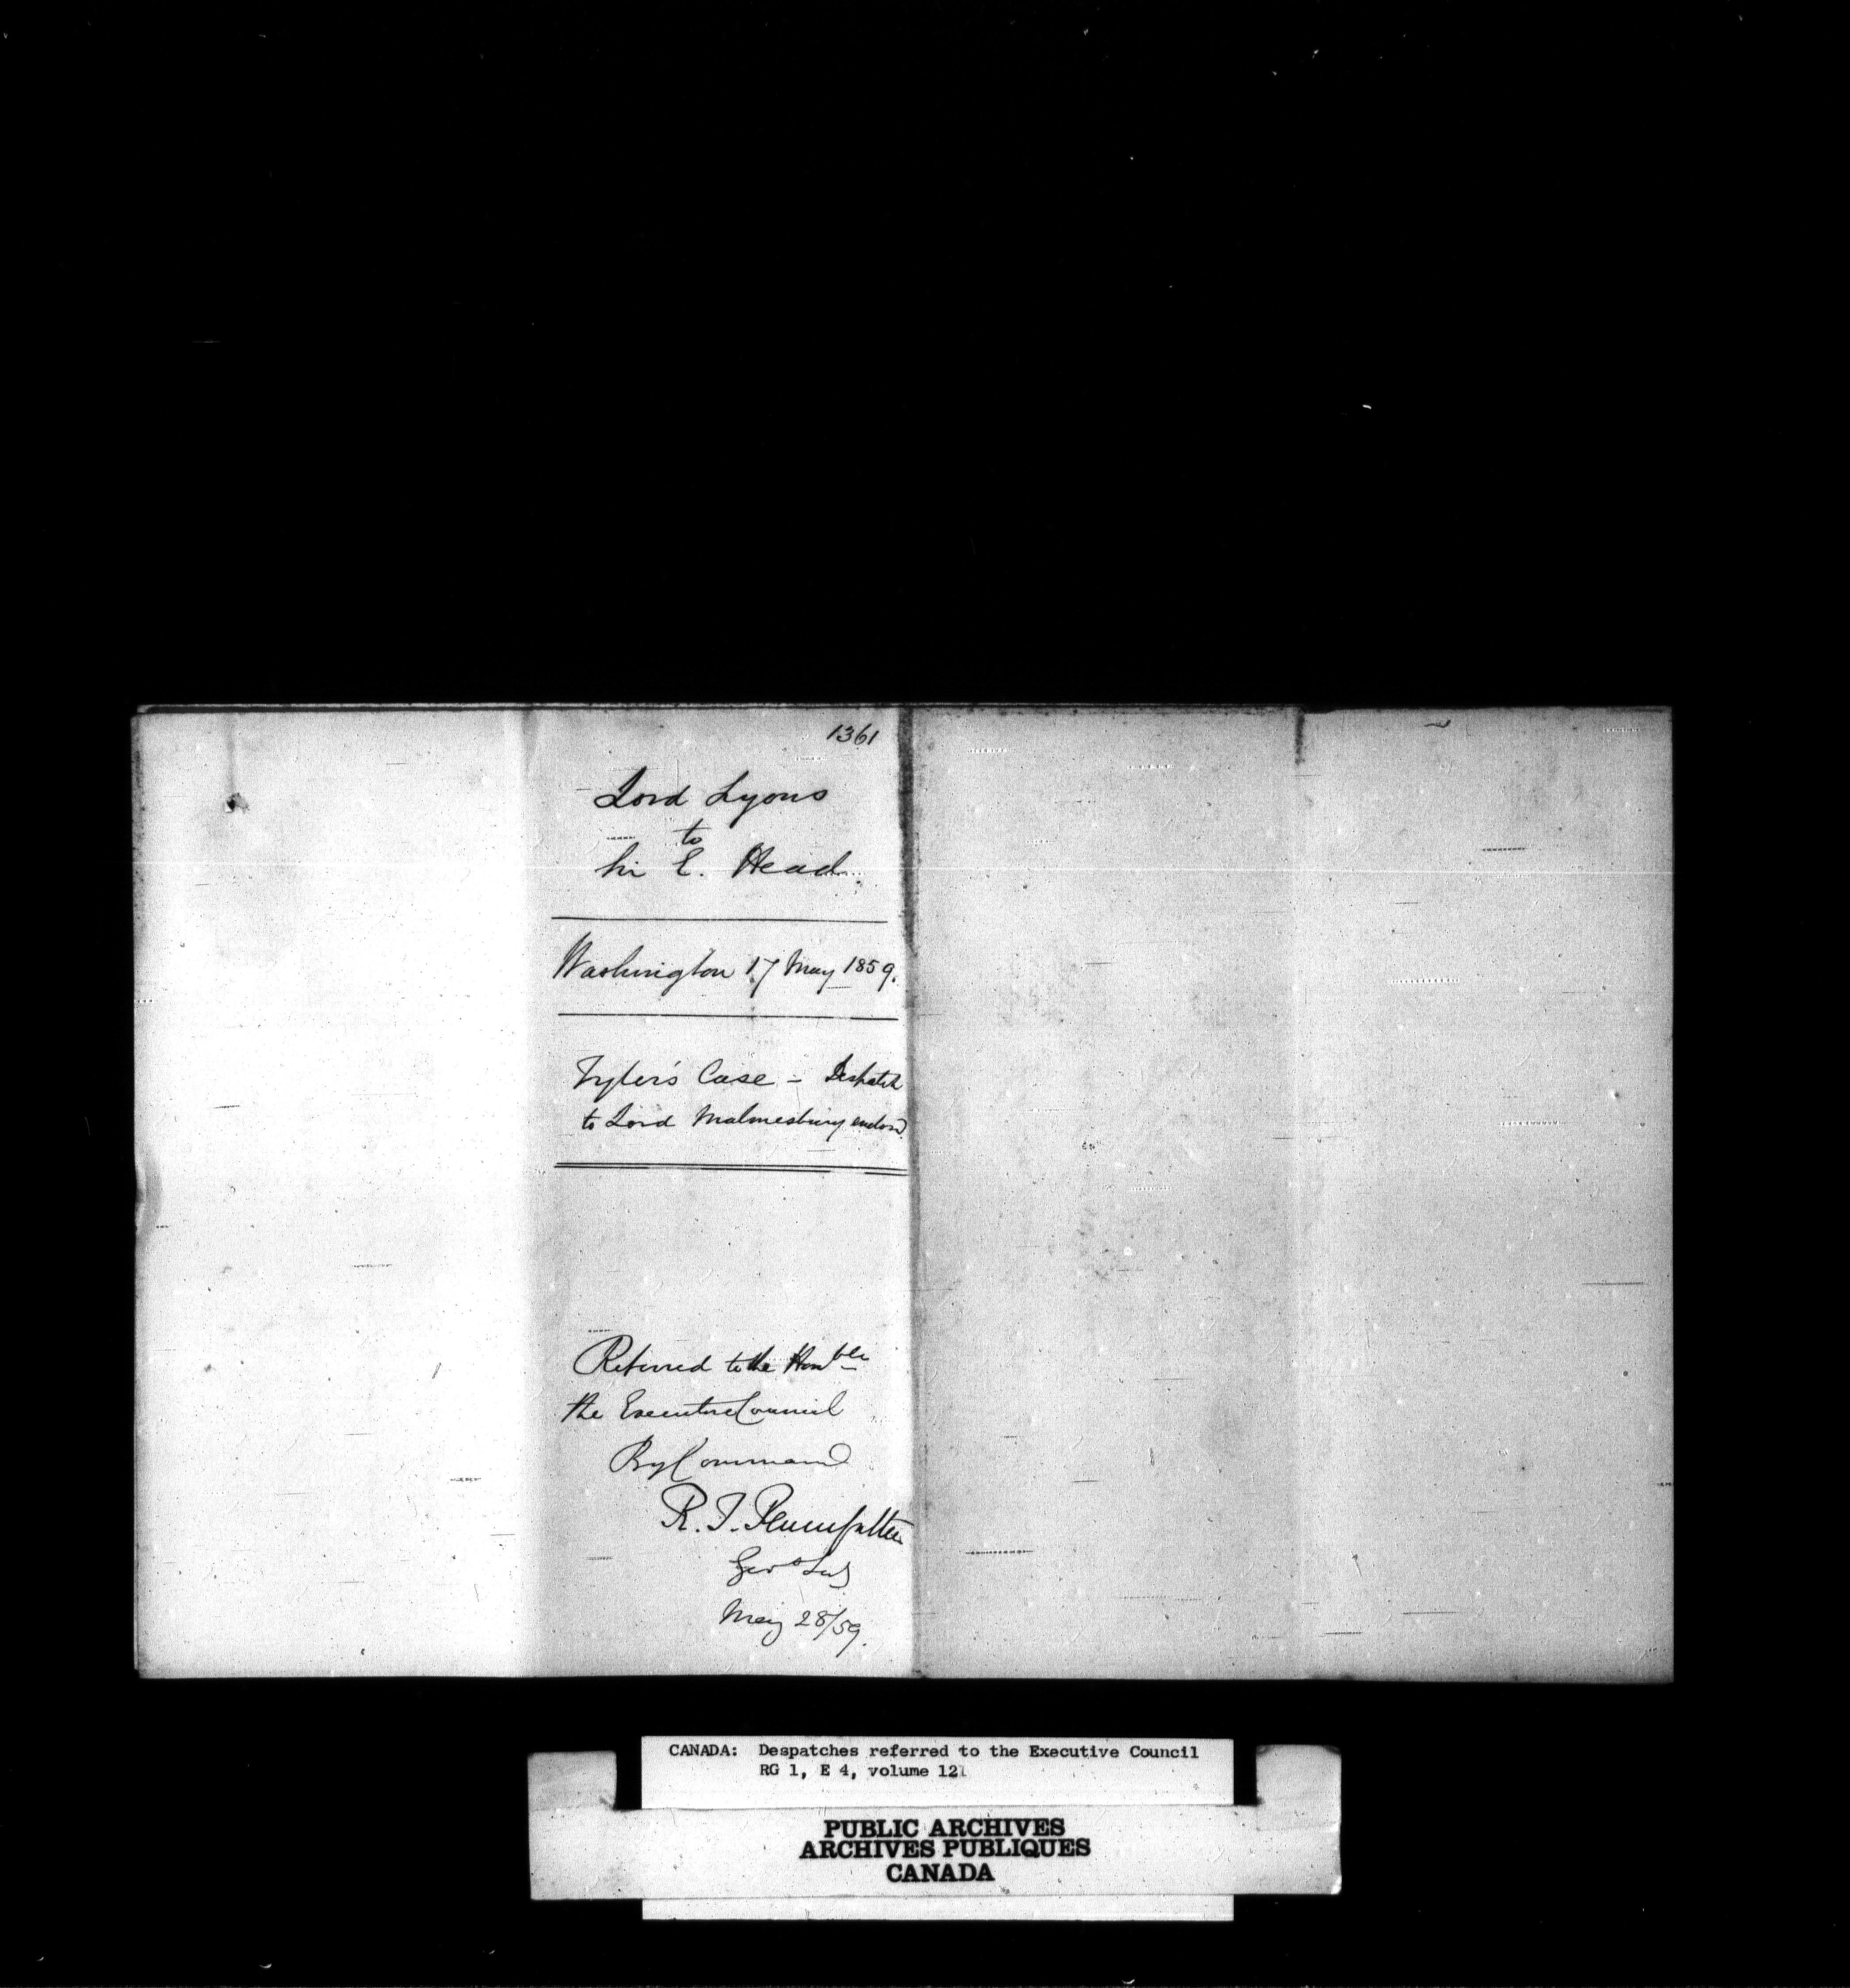 1361
Lord Lyons
to
Sir E. Head.
Washington 17 May 1859.
Tyler's Case - Despatch
to Lord Malmesbury enclosd.
Referred to the Honble
the Executive Council
By Command
R. T. Pennefather
May 28/59.
CANADA: Despatches referred to the Executive Council
RG 1, E 4, volume 121
PUBLIC ARCHIVES
ARCHIVES PUBLIQUES
CANADA